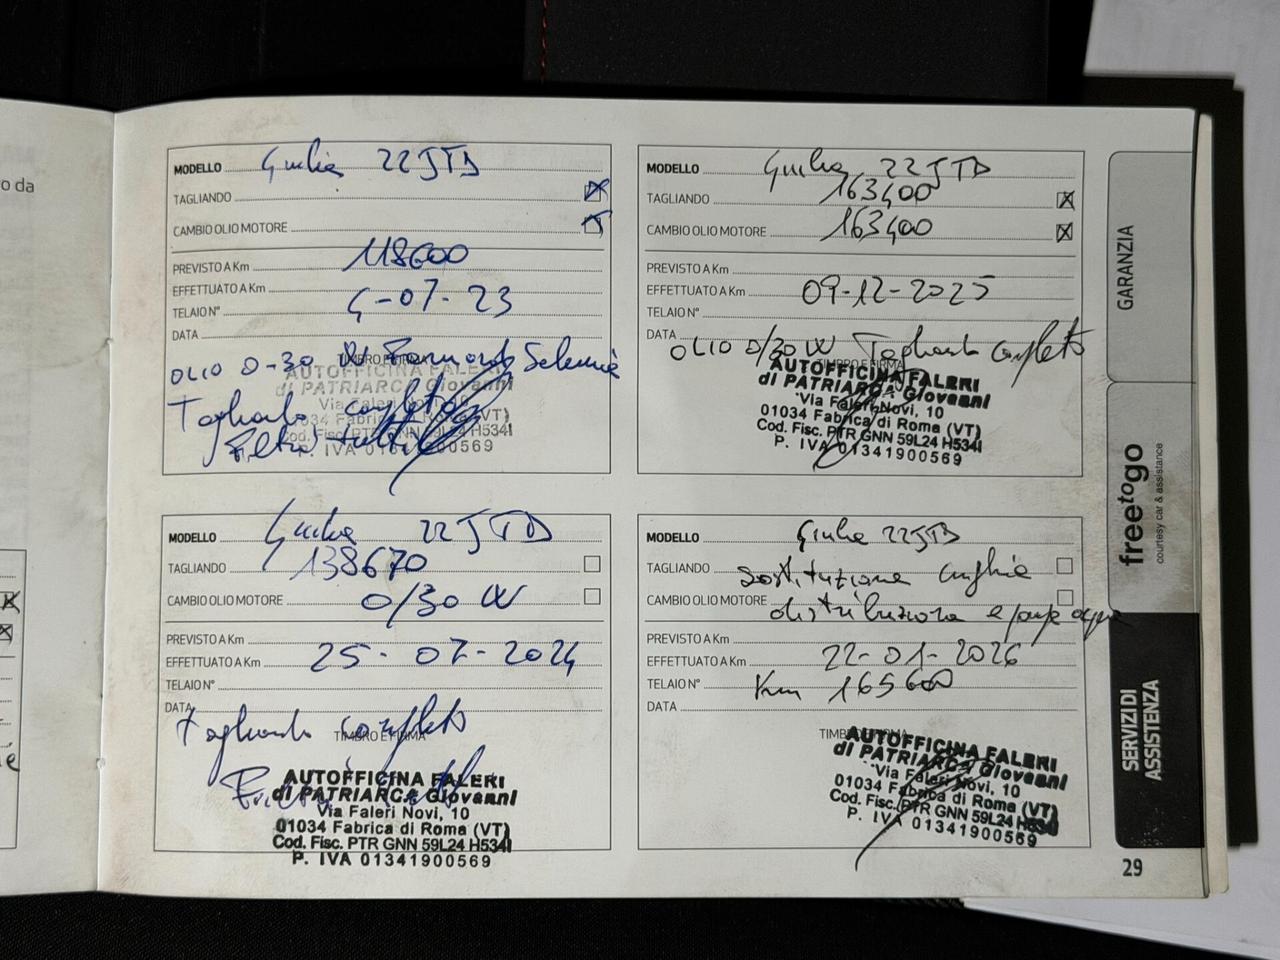 o da
MODELLO Giulia 22 JTD
TAGLIANDO
CAMBIO OLIO MOTORE
118600
PREVISTO A Km
EFFETTUATO A Km 4-07-23
TELAIO N°
DATA
OLIO 0-30 Selenia
TIMBRO E FIRMA
AUTOFFICINA FALERI
di PATRIARCA Giovanni
Via Faleri Novi, 10
Tagliando completo
01034 Fabrica di Roma (VT)
Filtri tutti
Cod. Fisc. PTR GNN 59L24 H534I
P. IVA 01341900569
MODELLO Giulia 22 JTD
TAGLIANDO 163400
CAMBIO OLIO MOTORE 163400
PREVISTO A Km
EFFETTUATO A Km 09-12-2025
TELAIO N°
DATA
OLIO 0/30 W Tagliando completo
TIMBRO E FIRMA
AUTOFFICINA FALERI
di PATRIARCA Giovanni
Via Faleri Novi, 10
01034 Fabrica di Roma (VT)
Cod. Fisc. PTR GNN 59L24 H534I
P. IVA 01341900569
MODELLO Giulia 22 JTD
TAGLIANDO 138670
CAMBIO OLIO MOTORE 0/30 W
PREVISTO A Km
EFFETTUATO A Km 25-07-2024
TELAIO N°
DATA
Tagliando completo
TIMBRO E FIRMA
AUTOFFICINA FALERI
di PATRIARCA Giovanni
Via Faleri Novi, 10
01034 Fabrica di Roma (VT)
Cod. Fisc. PTR GNN 59L24 H534I
P. IVA 01341900569
MODELLO Giulia 22 JTD
TAGLIANDO sostituzione cinghia
CAMBIO OLIO MOTORE distribuzione e pompa acqua
PREVISTO A Km
EFFETTUATO A Km 22-01-2026
TELAIO N° Km 165600
DATA
TIMBRO E FIRMA
AUTOFFICINA FALERI
di PATRIARCA Giovanni
Via Faleri Novi, 10
01034 Fabrica di Roma (VT)
Cod. Fisc. PTR GNN 59L24 H534I
P. IVA 01341900569
GARANZIA
freetogo
courtesy car & assistance
SERVIZI DI
ASSISTENZA
29